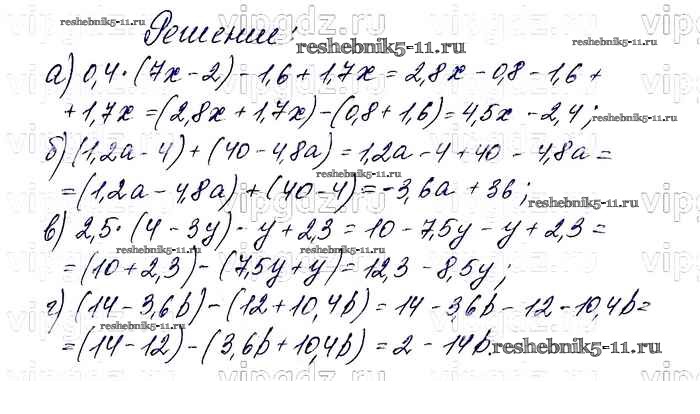 Решение:
а) 0,4·(7x - 2) - 1,6 + 1,7x = 2,8x - 0,8 - 1,6 +
+ 1,7x = (2,8x + 1,7x) - (0,8 + 1,6) = 4,5x - 2,4;
б) (1,2a - 4) + (40 - 4,8a) = 1,2a - 4 + 40 - 4,8a =
= (1,2a - 4,8a) + (40 - 4) = -3,6a + 36;
в) 2,5·(4 - 3y) - y + 2,3 = 10 - 7,5y - y + 2,3 =
= (10 + 2,3) - (7,5y + y) = 12,3 - 8,5y;
г) (14 - 3,6b) - (12 + 10,4b) = 14 - 3,6b - 12 - 10,4b =
= (14 - 12) - (3,6b + 10,4b) = 2 - 14b.
reshebnik5-11.ru
reshebnik5-11.ru
reshebnik5-11.ru
reshebnik5-11.ru
reshebnik5-11.ru
reshebnik5-11.ru
reshebnik5-11.ru
reshebnik5-11.ru
reshebnik5-11.ru